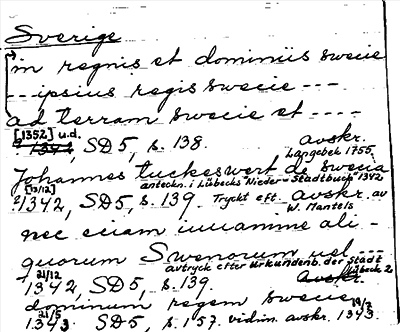 Sverige
in regnis et dominiis swecie
--- ipsius regis swecie ---
ad terram swecie et ----
[1352] u.d. avskr.
1344, SD5, s. 138. Langebek 1755,
Johannes tuckeswert de swecia
[13/12] anteckn. i Lübecks Nieder-Stadtbuch 1342
1342, SD5, s. 139. Tryckt eft. avskr. av
W. Mantels
nec eciam iuuamine ali-
quorum Swenorum uel ---
21/12 avtryck efter Urkundenb. der Stadt
1342, SD5, s. 139. Avskr. Lübeck 2
dominum regem swecie
21/5 19/7
1343. SD5, s. 157. vidim. avskr. 1343.